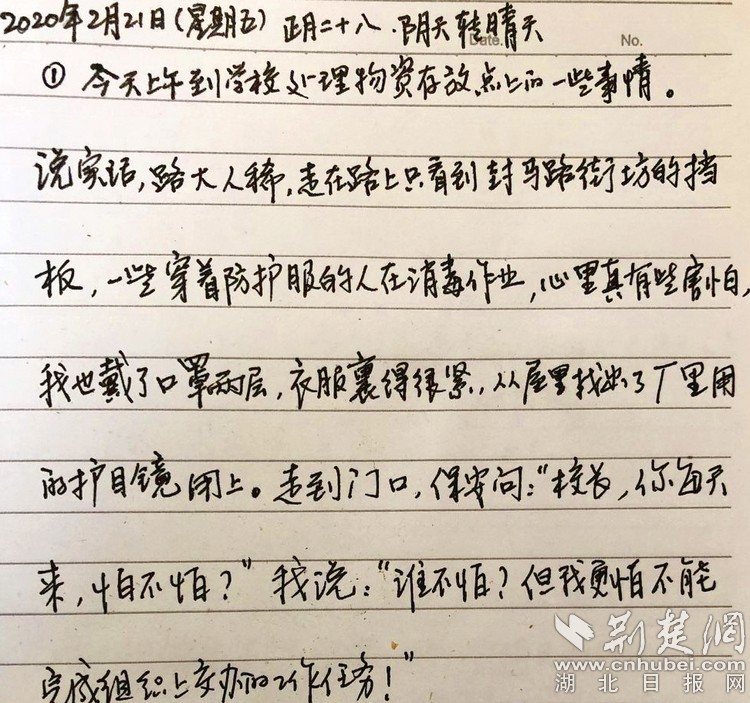 2020年2月21日(星期五) 正月二十八·阴天转晴天
Date.
No.
① 今天上午到学校处理物资存放点上的一些事情。
说实话,路大人稀,走在路上只看到封马路街坊的挡
板,一些穿着防护服的人在消毒作业,心里真有些害怕,
我也戴了口罩两层,衣服裹得很紧,从屋里找出了厂里用
的护目镜闭上。走到门口,保安问:“校长,你每天
来,怕不怕?”我说:“谁不怕?但我更怕不能
完成组织上交办的工作任务!”
荆楚网
www.cnhubei.com
湖北日报网